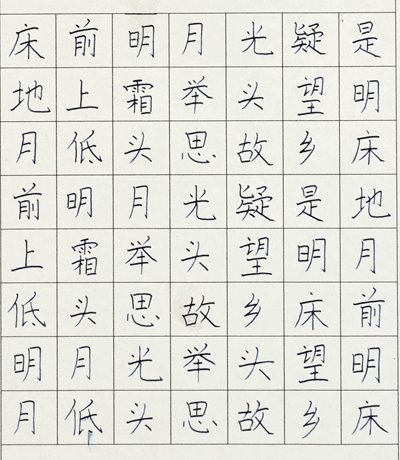 床前明月光疑是
地上霜举头望明
月低头思故乡床
前明月光疑是地
上霜举头望明月
低头思故乡床前
明月光举头望明
月低头思故乡床